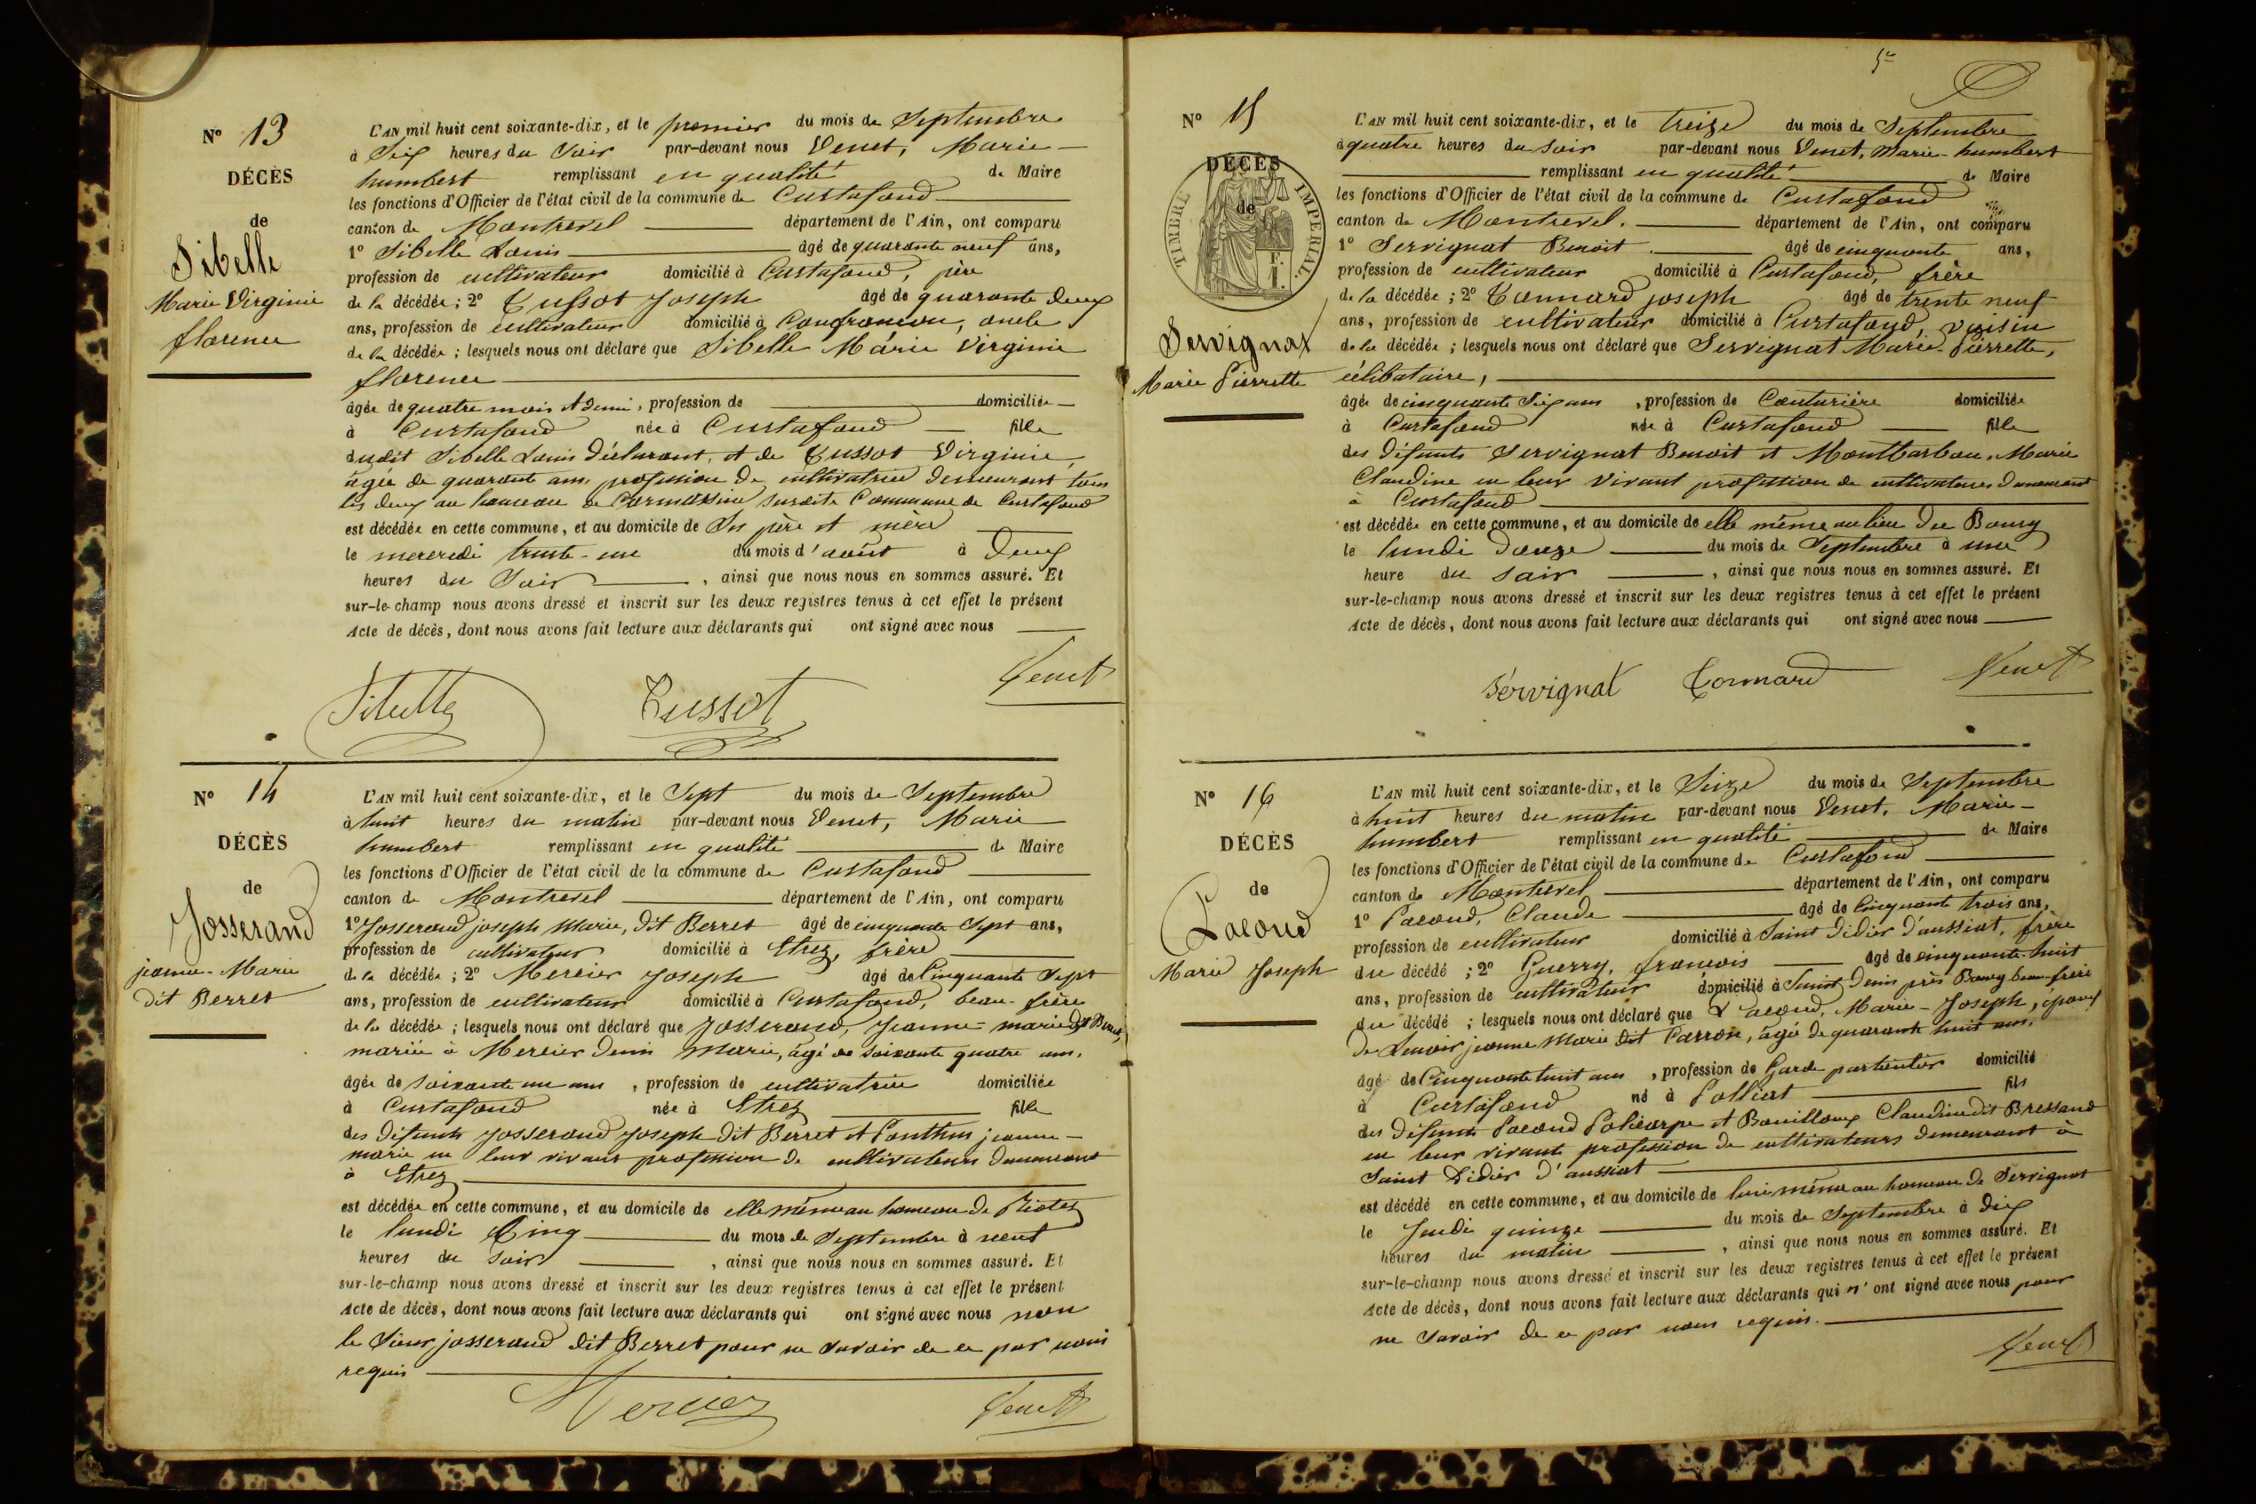 N° 13
DÉCÈS
de
Sibelle
Marie Virginie
florence
L'AN mil huit cent soixante-dix, et le premier du mois de Septembre
à Six heures du Soir par-devant nous Venet, Marie-
humbert remplissant en qualité de Maire
les fonctions d'Officier de l'état civil de la commune de Curtafond
canton de Montrevel département de l'Ain, ont comparu
1° Sibelle Louis âgé de quarante neuf ans,
profession de cultivateur domicilié à Curtafond, père
de la décédée ; 2° Tussot Joseph âgé de quarante deux
ans, profession de cultivateur domicilié à Confrançon, oncle
de la décédée ; lesquels nous ont déclaré que Sibelle Marie Virginie
florence
âgée de quatre mois et demi, profession de domiciliée
à Curtafond née à Curtafond fille
dudit Sibelle Louis déclarant, et de Tussot Virginie,
âgée de quarante ans profession de cultivatrice demeurant tous
les deux au hameau de susdite Commune de Curtafond
est décédée en cette commune, et au domicile de Ses père et mère
le mercredi trente-un du mois d'août à Deux
heures du Soir, ainsi que nous nous en sommes assuré. Et
sur-le-champ nous avons dressé et inscrit sur les deux registres tenus à cet effet le présent
Acte de décès, dont nous avons fait lecture aux déclarants qui ont signé avec nous
Sibelle Tussot Venet
N° 14
DÉCÈS
de
Josserand
jeanne-Marie
dit Berret
L'AN mil huit cent soixante-dix, et le Sept du mois de Septembre
à huit heures du matin par-devant nous Venet, Marie
humbert remplissant en qualité de Maire
les fonctions d'Officier de l'état civil de la commune de Curtafond
canton de Montrevel département de l'Ain, ont comparu
1° Josserand joseph Marie, dit Berret âgé de cinquante Sept ans,
profession de cultivateur domicilié à Etrez, frère
de la décédée ; 2° Mercier Joseph âgé de Cinquante Sept
ans, profession de cultivateur domicilié à Curtafond, beau-frère
de la décédée ; lesquels nous ont déclaré que Josserand, Jeanne-marie dit Berret,
mariée à Mercier Denis Marie, âgé de soixante quatre ans,
âgée de soixante un ans, profession de cultivatrice domiciliée
à Curtafond née à Etrez fille
des défunts Josserand Joseph dit Berret et Ponthus jeanne-
marie en leur vivant profession de cultivateurs demeurant
à Etrez
est décédée en cette commune, et au domicile de elle même au hameau de
le lundi Cinq du mois de Septembre à neuf
heures du Soir, ainsi que nous nous en sommes assuré. Et
sur-le-champ nous avons dressé et inscrit sur les deux registres tenus à cet effet le présent
Acte de décès, dont nous avons fait lecture aux déclarants qui ont signé avec nous non
le Sieur josserand dit Berret pour ne savoir de ce par nous
requis
Mercier Venet
5e
N° 15
DÉCÈS
de
TIMBRE IMPÉRIAL
Servignat
Marie Pierrette
L'AN mil huit cent soixante-dix, et le treize du mois de Septembre
à quatre heures du soir par-devant nous Venet, Marie-humbert
remplissant en qualité de Maire
les fonctions d'Officier de l'état civil de la commune de Curtafond
canton de Montrevel. département de l'Ain, ont comparu
1° Servignat Benoit âgé de cinquante ans,
profession de cultivateur domicilié à Curtafond, frère
de la décédée ; 2° Tonnard joseph âgé de trente neuf
ans, profession de cultivateur domicilié à Curtafond, voisin
de la décédée ; lesquels nous ont déclaré que Servignat Marie-Pierrette,
célibataire,
âgée de cinquante Six ans, profession de Couturière domiciliée
à Curtafond née à Curtafond fille
des défunts Servignat Benoit et Montbarbon, Marie
Claudine en leur vivant profession de cultivateurs demeurant
à Curtafond
est décédée en cette commune, et au domicile de elle même au lieu du Bourg
le lundi douze du mois de Septembre à une
heure du soir, ainsi que nous nous en sommes assuré. Et
sur-le-champ nous avons dressé et inscrit sur les deux registres tenus à cet effet le présent
Acte de décès, dont nous avons fait lecture aux déclarants qui ont signé avec nous
Sérvignat Tonnard Venet
N° 16
DÉCÈS
de
Pacoud
Marie Joseph
L'AN mil huit cent soixante-dix, et le Seize du mois de Septembre
à huit heures du matin par-devant nous Venet, Marie-
humbert remplissant en qualité de Maire
les fonctions d'Officier de l'état civil de la commune de Curtafond
canton de Montrevel département de l'Ain, ont comparu
1° Pacoud, Claude âgé de Cinquante trois ans,
profession de cultivateur domicilié à Saint Didier d'aussiat, frère
du décédé ; 2° Guerry, françois âgé de cinquante-huit
ans, profession de cultivateur domicilié à Saint Denis près Bourg beau-frère
du décédé ; lesquels nous ont déclaré que Pacoud, Marie-Joseph, époux
de jeanne Marie dit Carron, âgée de quarante huit ans,
âgé de Cinquante huit ans, profession de Garde particulier domicilié
à Curtafond né à Polliat fils
des défunts Pacoud Policarpe et Bouilloux Claudine dit Bressand
en leur vivant profession de cultivateurs demeurant à
Saint Didier d'aussiat
est décédé en cette commune, et au domicile de lui même au hameau de Servignat
le Jeudi quinze du mois de Septembre à dix
heures du matin, ainsi que nous nous en sommes assuré. Et
sur-le-champ nous avons dressé et inscrit sur les deux registres tenus à cet effet le présent
Acte de décès, dont nous avons fait lecture aux déclarants qui n'ont signé avec nous pour
ne savoir de ce par nous requis.
Venet